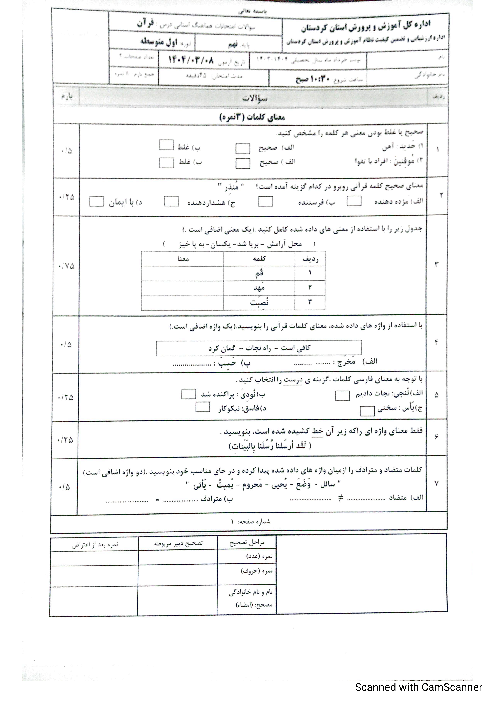 باسمه تعالی
اداره کل آموزش و پرورش استان کردستان
اداره ارزشیابی و تضمین کیفیت نظام آموزش و پرورش استان کردستان
سوالات امتحانات هماهنگ استانی درس قرآن
پایه نهم دوره اول متوسطه
تاریخ آزمون ۱۴۰۴/۰۳/۰۸
ساعت شروع ۱۰:۳۰ صبح
ردیف سؤالات بارم
معنای کلمات (۳نمره)
۱ صحیح یا غلط بودن معنی هر کلمه را مشخص کنید. ۰/۵
۱) حَدید: آهن الف) صحیح ب) غلط
۲) موقِنینَ: افراد با تقوا الف) صحیح ب) غلط
۲ معنای صحیح کلمه قرآنی روبرو در کدام گزینه آمده است؟ " مُنذِر " ۰/۲۵
الف) مژده دهنده ب) فرستنده ج) هشداردهنده د) با ایمان
۳ جدول زیر را با استفاده از معنی های داده شده کامل کنید.( یک معنی اضافی است .) ۰/۷۵
( محل آرامش- برپا شد- یکسان- به پا خیز )
ردیف کلمه معنا
۱ قُم
۲ مَهد
۳ نُصِبَت
۴ با استفاده از واژه های داده شده، معنای کلمات قرآنی را بنویسید.(یک واژه اضافی است.) ۰/۵
کافی است – راه نجات – گمان کرد
الف) مَخرَج : ................ ب) حَسِبَ : ................
۵ با توجه به معنای فارسی کلمات ،گزینه ی درست را انتخاب کنید . ۰/۲۵
الف)نُنجی: نجات دادیم ب)نُودِی: پراکنده شد
ج)بَأس: سختی د)فاسِق: نیکوکار
۶ فقط معنای واژه ای راکه زیر آن خط کشیده شده است، بنویسید . ۰/۲۵
( لَقَد أرسَلنا رُسُلَنا بِالبَیِّناتِ)
۷ کلمات متضاد و مترادف را ازمیان واژه های داده شده پیدا کرده و در جای مناسب خود بنویسید .(دو واژه اضافی است) ۰/۵
" سائل - وَضَعَ - یُحیی - مَحروم - یُمیتُ - یَأتی "
الف) متضاد ................ ≠ ................ ب) مترادف ................ = ................
شماره صفحه: ۱
مراحل تصحیح تصحیح دبیر مربوطه نمره بعد از اعتراض
نمره (عدد)
نمره (حروف)
نام و نام خانوادگی
مصحح: (امضاء)
Scanned with CamScanner